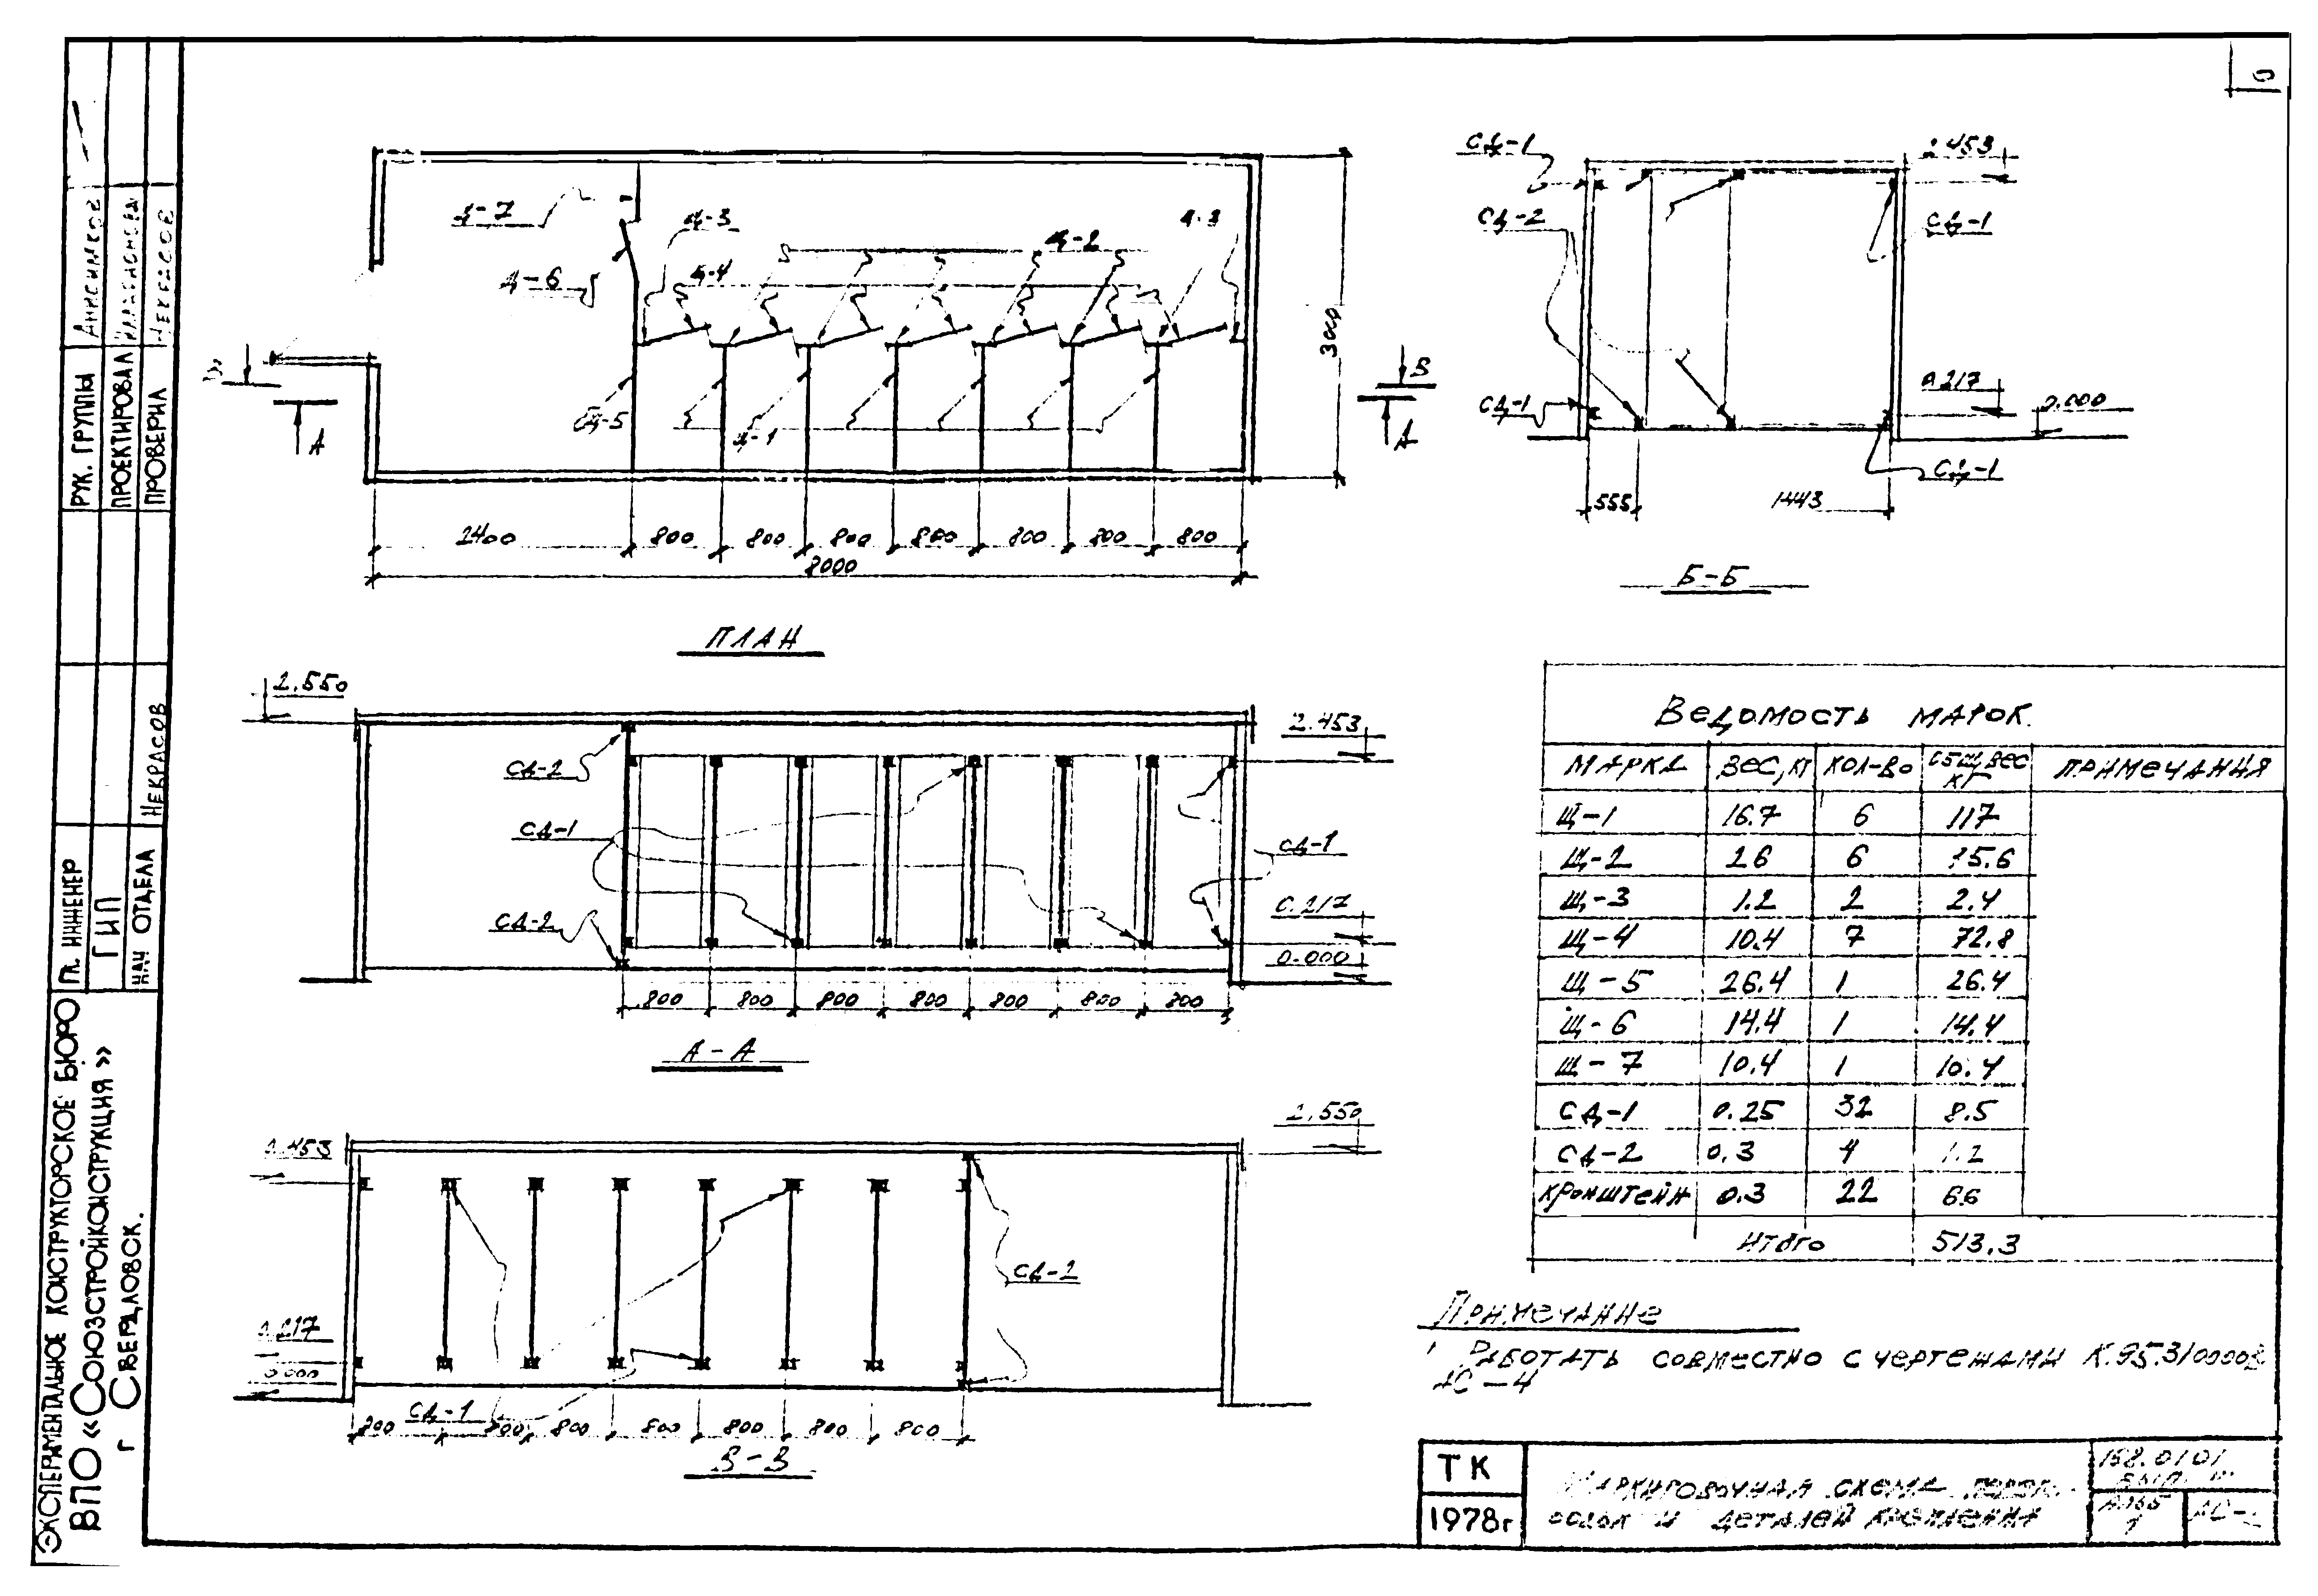 Щ-7
Щ-3
Щ-2
Щ-3
Щ-4
Щ-6
Щ-5
Щ-1
3000
В
А
А
2400
800
800
800
800
800
800
800
8000
ПЛАН
СД-1
2.453
СД-2
СД-1
СД-1
0.217
0.000
СД-1
555
1443
Б-Б
2.550
2.453
СД-2
СД-1
СД-1
СД-2
0.217
0.000
800
800
800
800
800
800
800
А-А
2.550
СД-2
СД-1
800
800
800
800
800
800
В-В
Ведомость марок.
Марка Вес, кг Кол-во Общ. вес кг Примечания
Щ-1 16.7 6 117
Щ-2 26 6
Щ-3 1.2 2 2.4
Щ-4 10.4 7 72.8
Щ-5 26.4 1 26.4
Щ-6 14.4 1 14.4
Щ-7 10.4 1 10.4
СД-1 0.25 32 8.5
СД-2 0.3 4 1.2
Кронштейн 0.3 22 6.6
Итого 513.3
Примечание
Работать совместно с чертежами
АС-4
ТК
1978г
Маркировочная схема
и деталей крепления
РУК. ГРУППЫ
АНИСИМКОВ
ПРОЕКТИРОВАЛ
ПРОВЕРИЛ
НЕКРАСОВ
ГК. ИНЖЕНЕР
ГИП
НАЧ ОТДЕЛА
НЕКРАСОВ
ЭКСПЕРИМЕНТАЛЬНОЕ КОНСТРУКТОРСКОЕ БЮРО
ВПО «СОЮЗСТРОЙКОНСТРУКЦИЯ»
г СВЕРДЛОВСК.